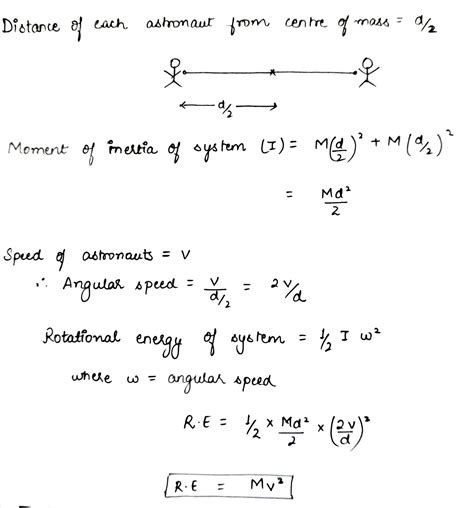 Distance of each astronaut from centre of mass = d/2
d/2
Moment of inertia of system (I) = M(d/2)² + M(d/2)²
= Md²/2
Speed of astronauts = V
∴ Angular speed = V/d/2 = 2V/d
Rotational energy of system = 1/2 I ω²
where ω = angular speed
R.E = 1/2 × Md²/2 × (2V/d)²
R.E = MV²